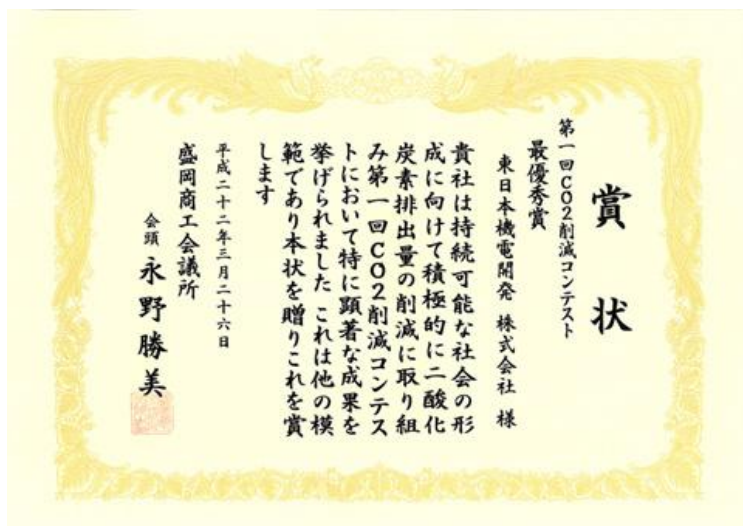 賞状
第一回CO2削減コンテスト
最優秀賞
東日本機電開発 株式会社 様
貴社は持続可能な社会の形
成に向けて積極的に二酸化
炭素排出量の削減に取り組
み第一回CO2削減コンテス
トにおいて特に顕著な成果を
挙げられました これは他の模
範であり本状を贈りこれを賞
します
平成二十二年三月二十六日
盛岡商工会議所
会頭 永野勝美